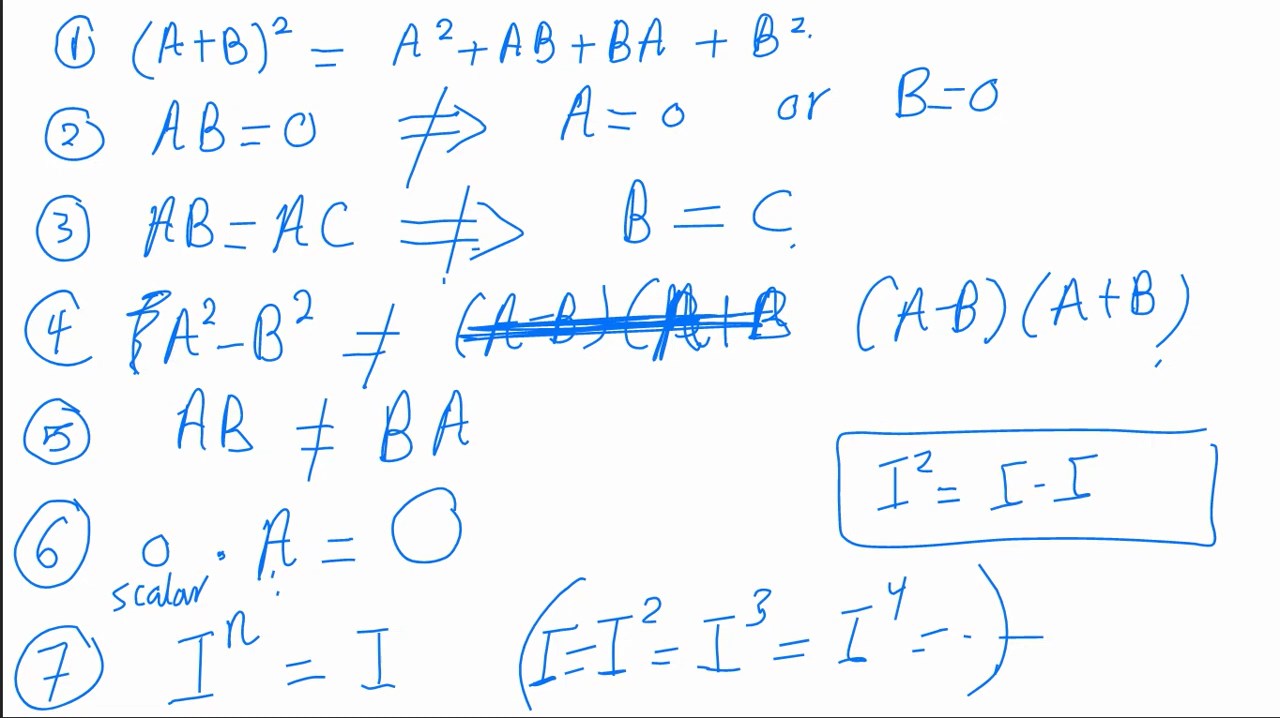 ① (A+B)² = A² + AB + BA + B².
② AB = 0 ⇏ A = 0 or B = 0
③ AB = AC ⇏ B = C.
④ A² - B² ≠ (A-B)(A+B (A-B)(A+B).
⑤ AB ≠ BA
I² = I · I
⑥ 0 · A = O
scalar
⑦ Iⁿ = I (I = I² = I³ = I⁴ = ...)